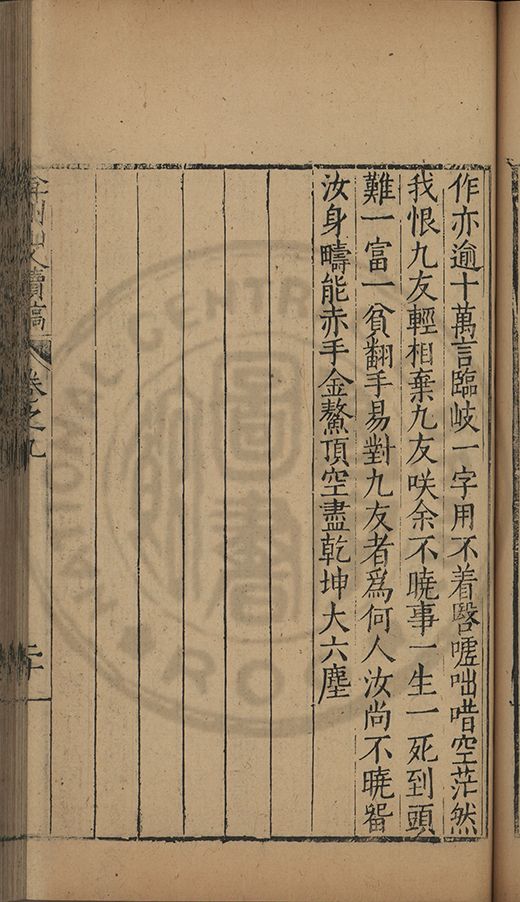 作亦逾十萬言臨岐一字用不着醫噓咄唶空茫然
我恨九友輕相棄九友咲余不曉事一生一死到頭
難一富一貧翻手易對九友者爲何人汝尚不曉留
汝身疇能赤手金鰲頂空盡乾坤大六塵
弇州山人續稿
卷之九
二十